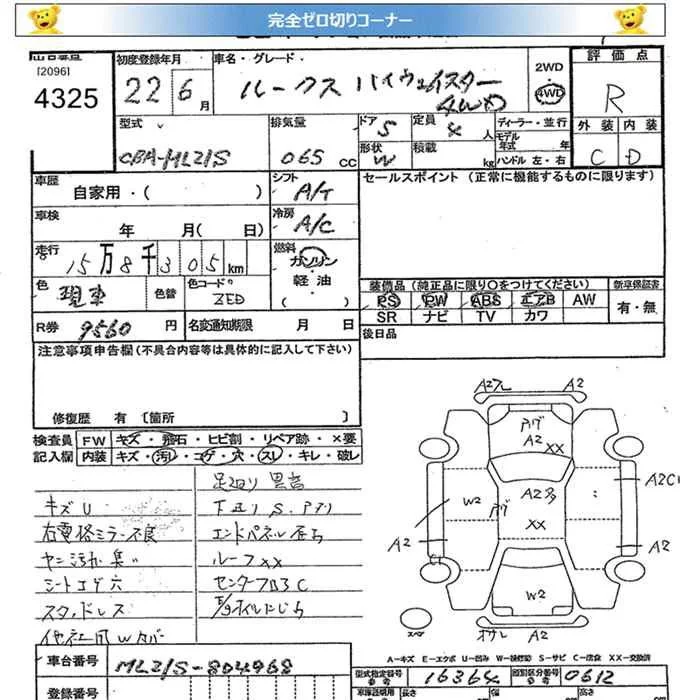 完全ゼロ切りコーナー
[2096]
4325
初度登録年月
22年6月
車名・グレード
ルークス ハイウェイスター
4WD
2WD
4WD
評価点
R
型式
CBA-ML21S
排気量
065 cc
ドア 5
定員 4 人
形状 W
積載 kg
ディーラー・並行
モデル年式 年
ハンドル 左・右
外装 内装
C D
車歴
自家用・( )
シフト
A/T
セールスポイント (正常に機能するものに限ります)
車検
年 月( 日)
冷房
A/C
走行
15万8千305km
燃料
ガソリン
軽油
色
現車
色替
色コードNo.
ZED
装備品 (純正品に限り○をつけてください)
新車保証書
PS PW ABS エアB AW
SR ナビ TV カワ
有・無
R券 9560 円
名変通知期限 月 日
後日品
注意事項申告欄 (不具合内容等は具体的に記入して下さい)
修復歴 有 [箇所 ]
検査員記入欄
FW キズ・飛石・ヒビ割・リペア跡・×要
内装 キズ・汚れ・コゲ・穴・スレ・キレ・破レ
キズU
右電格ミラー不良
ヤニ汚れ 臭い
シートコゲ穴
スタッドレス
他社用Wカバー
足廻り 異音
下廻り S.アリ
エンドパネル歪ち
ルーフXX
A2 A2
A2
XX
W2
A2多
XX
A2C1
A2
A2
W2
スペア
A2
A-キズ E-エクボ U-凹み W-補修跡 S-サビ C-腐食 XX-交換済
車台番号
ML21S-804968
登録番号
型式指定番号 参考
16364
類別区分番号 参考
0612
長さ
幅
高さ